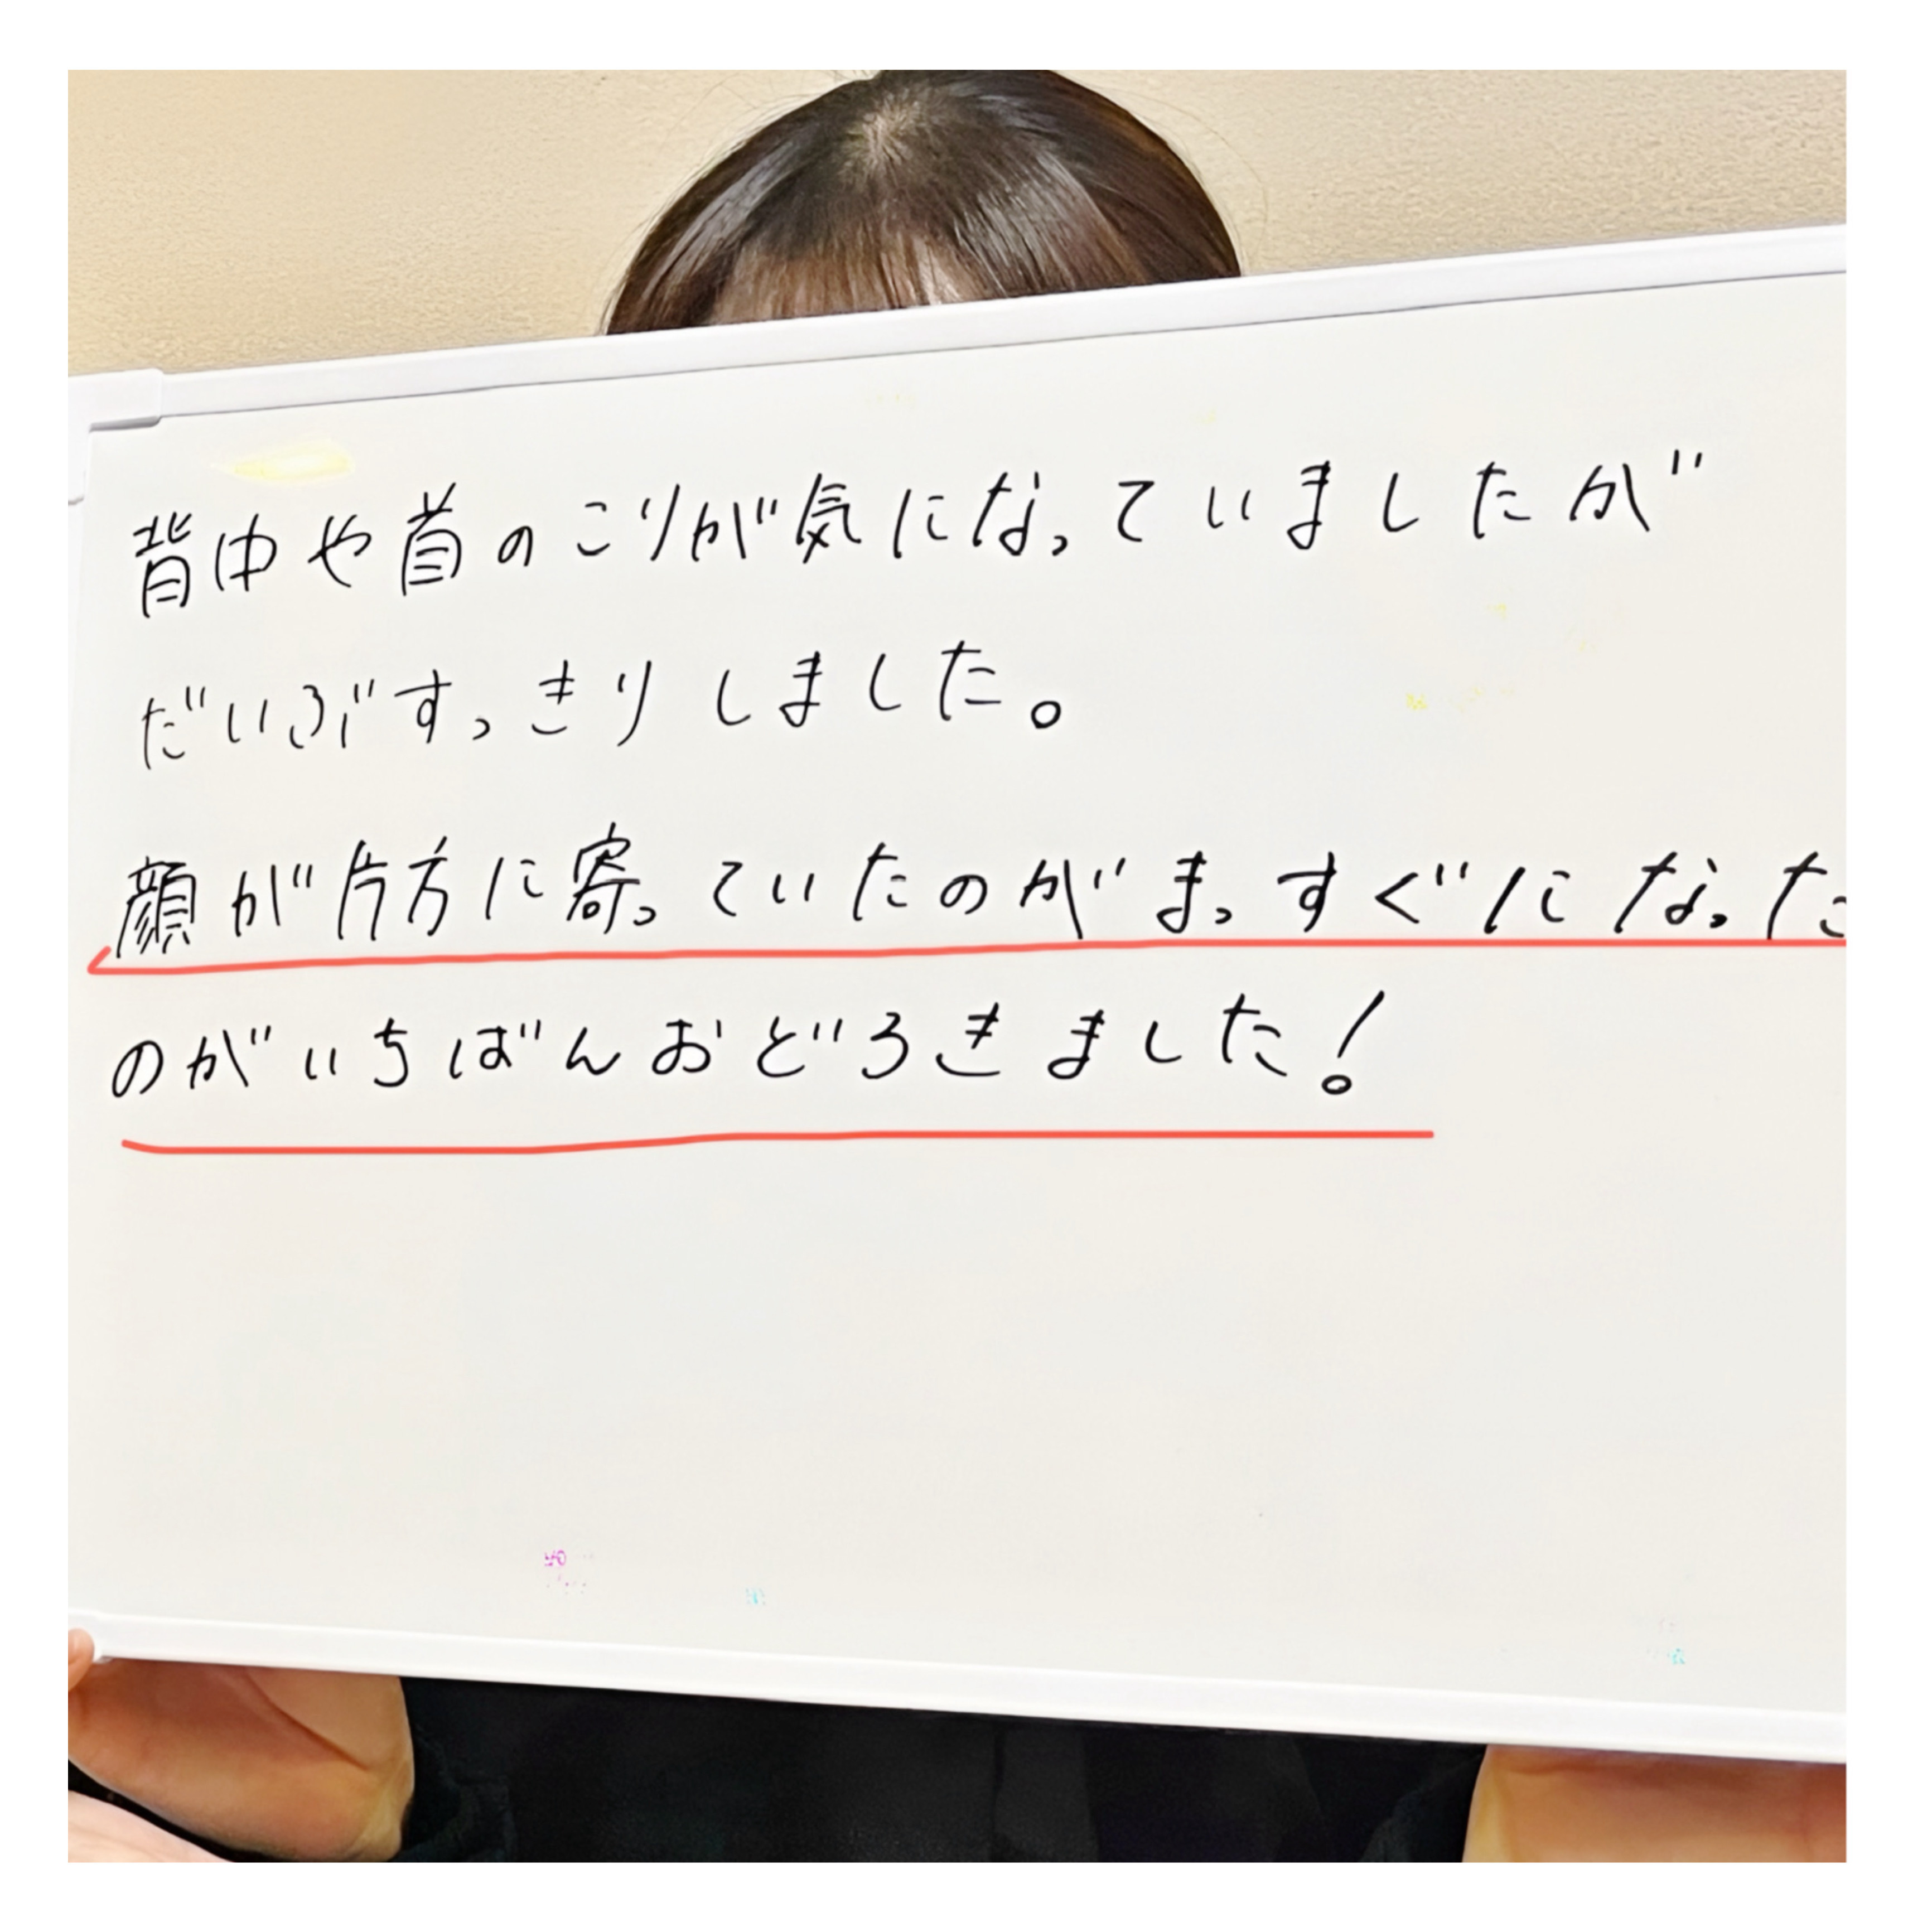 背中や首のこりが気になっていましたが
だいぶすっきりしました。
顔が片方に寄っていたのがまっすぐになった
のがいちばんおどろきました!